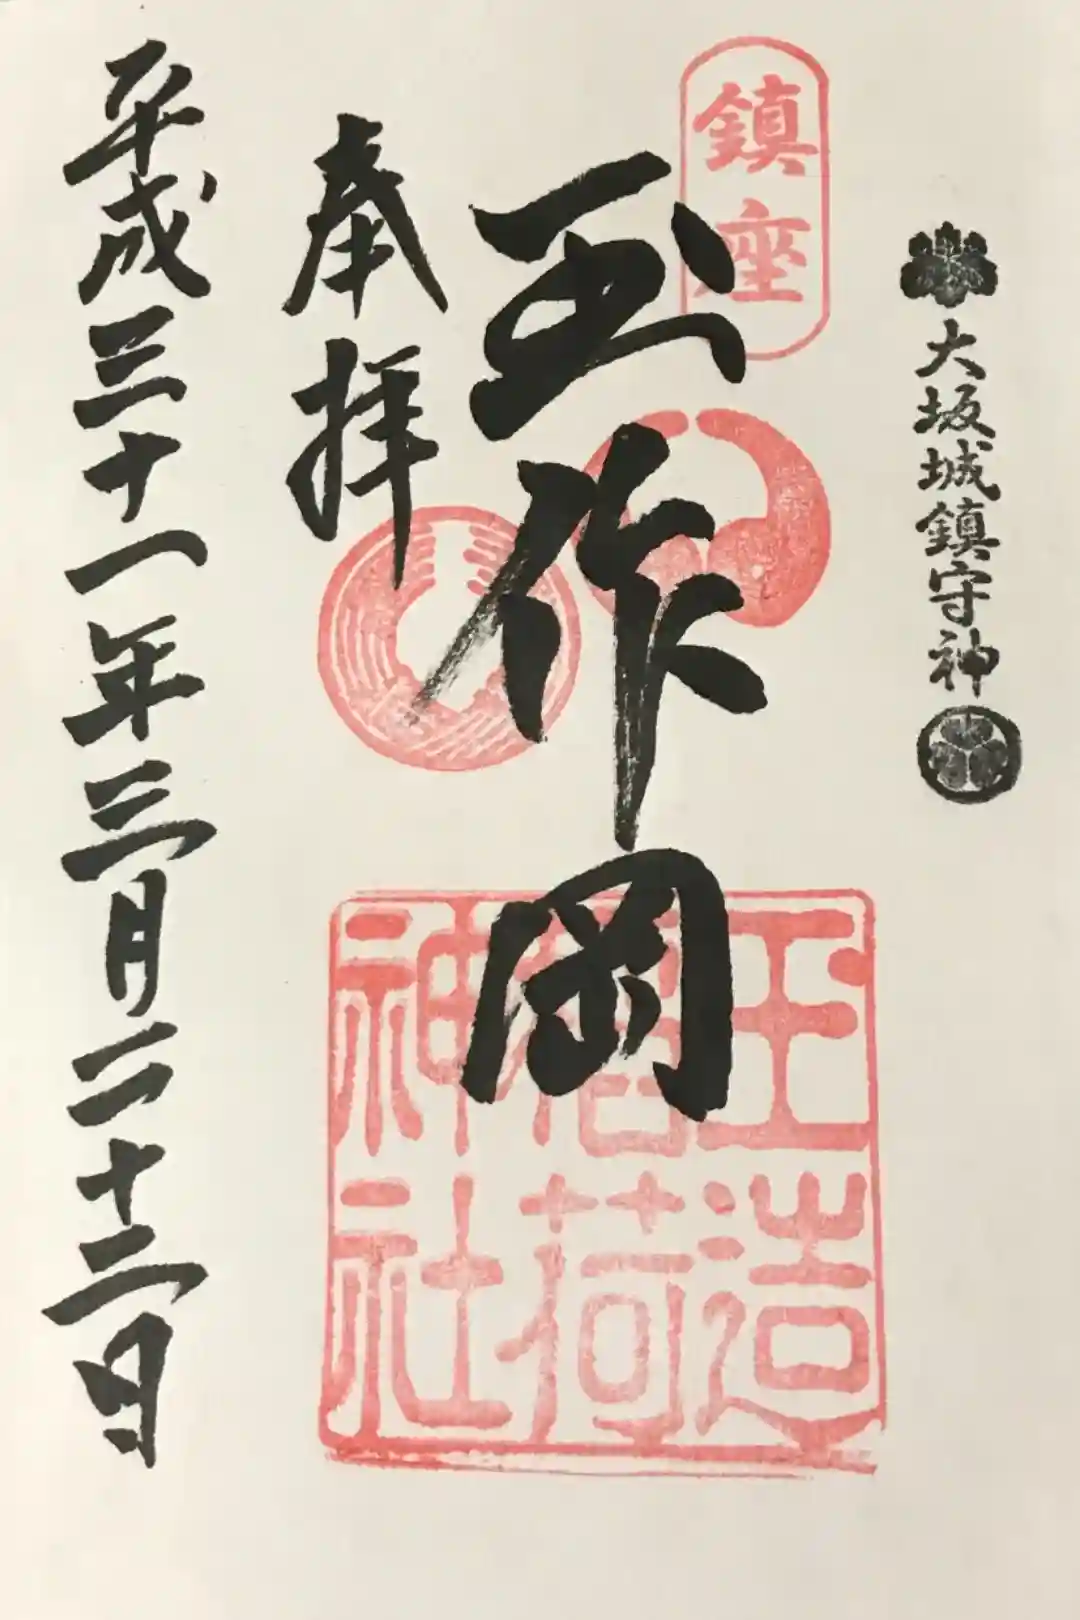 大坂城鎮守神
鎮座
玉作岡
玉造
稲荷
神社
奉拝
平成三十一年三月二十二日